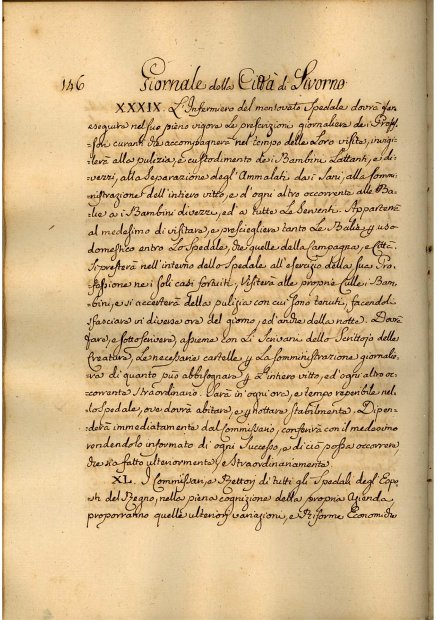 146 Giornale della Città di Livorno
XXXIX. L'Infermiero del mentovato Spedale dovrà far
eseguire nel suo pieno vigore le prescrizioni giornaliere de i Profes=
=sori curanti da accompagnare nel tempo delle Loro visite, invigi=
lerà alla pulizia, e custodimento de i Bambini Lattanti, e di=
=vezzi, alla separazione degl'Ammalati da i Sani, alla sommi=
=nistrazione dell'intiero vitto, e d'ogni altro occorrente alle Ba=
=lie a i Bambini divezzi, ed a tutte le Serventi. Apparterrà
al medesimo di visitare, e prescegliere tanto le Balie p uso
domestico entro lo Spedale, che quelle della Campagna, e Città.
Si presterà nell'interno dello Spedale all'esercizio della sua Pro=
=fessione ne i soli casi fortuiti, Visiterà alle proprie Culle i Bam=
=bini, e si accerterà della pulizia con cui sono tenuti, facendoli
sfasciare in diverse ore del giorno, ed anche della notte. Dovrà
fare, e sottoscrivere, assieme con li Scrivani dello Scrittojo delle
Creature, le necessarie cartelle p la somministrazione giornalie=
=ra di quanto può abbisognare p l'intiero vitto, ed ogni altro oc=
=corrente straordinario. Sarà in ogni ora, e tempo reperibile nel=
lo Spedale, ove dovrà abitare, e pnottare stabilmente. Dipen=
=derà immediatamente dal Commissario, conferirà con il medesimo
rendendolo informato di ogni successo, e di ciò possa occorrere
che sia fatto ulteriormente, e straordinariamente.
XL. I Commissari, e Rettori di tutti gli Spedali degl'Espo=
=sti del Regno, nella piena cognizione della propria Azienda
proporranno quelle ulteriori variazioni, e Riforme Economiche